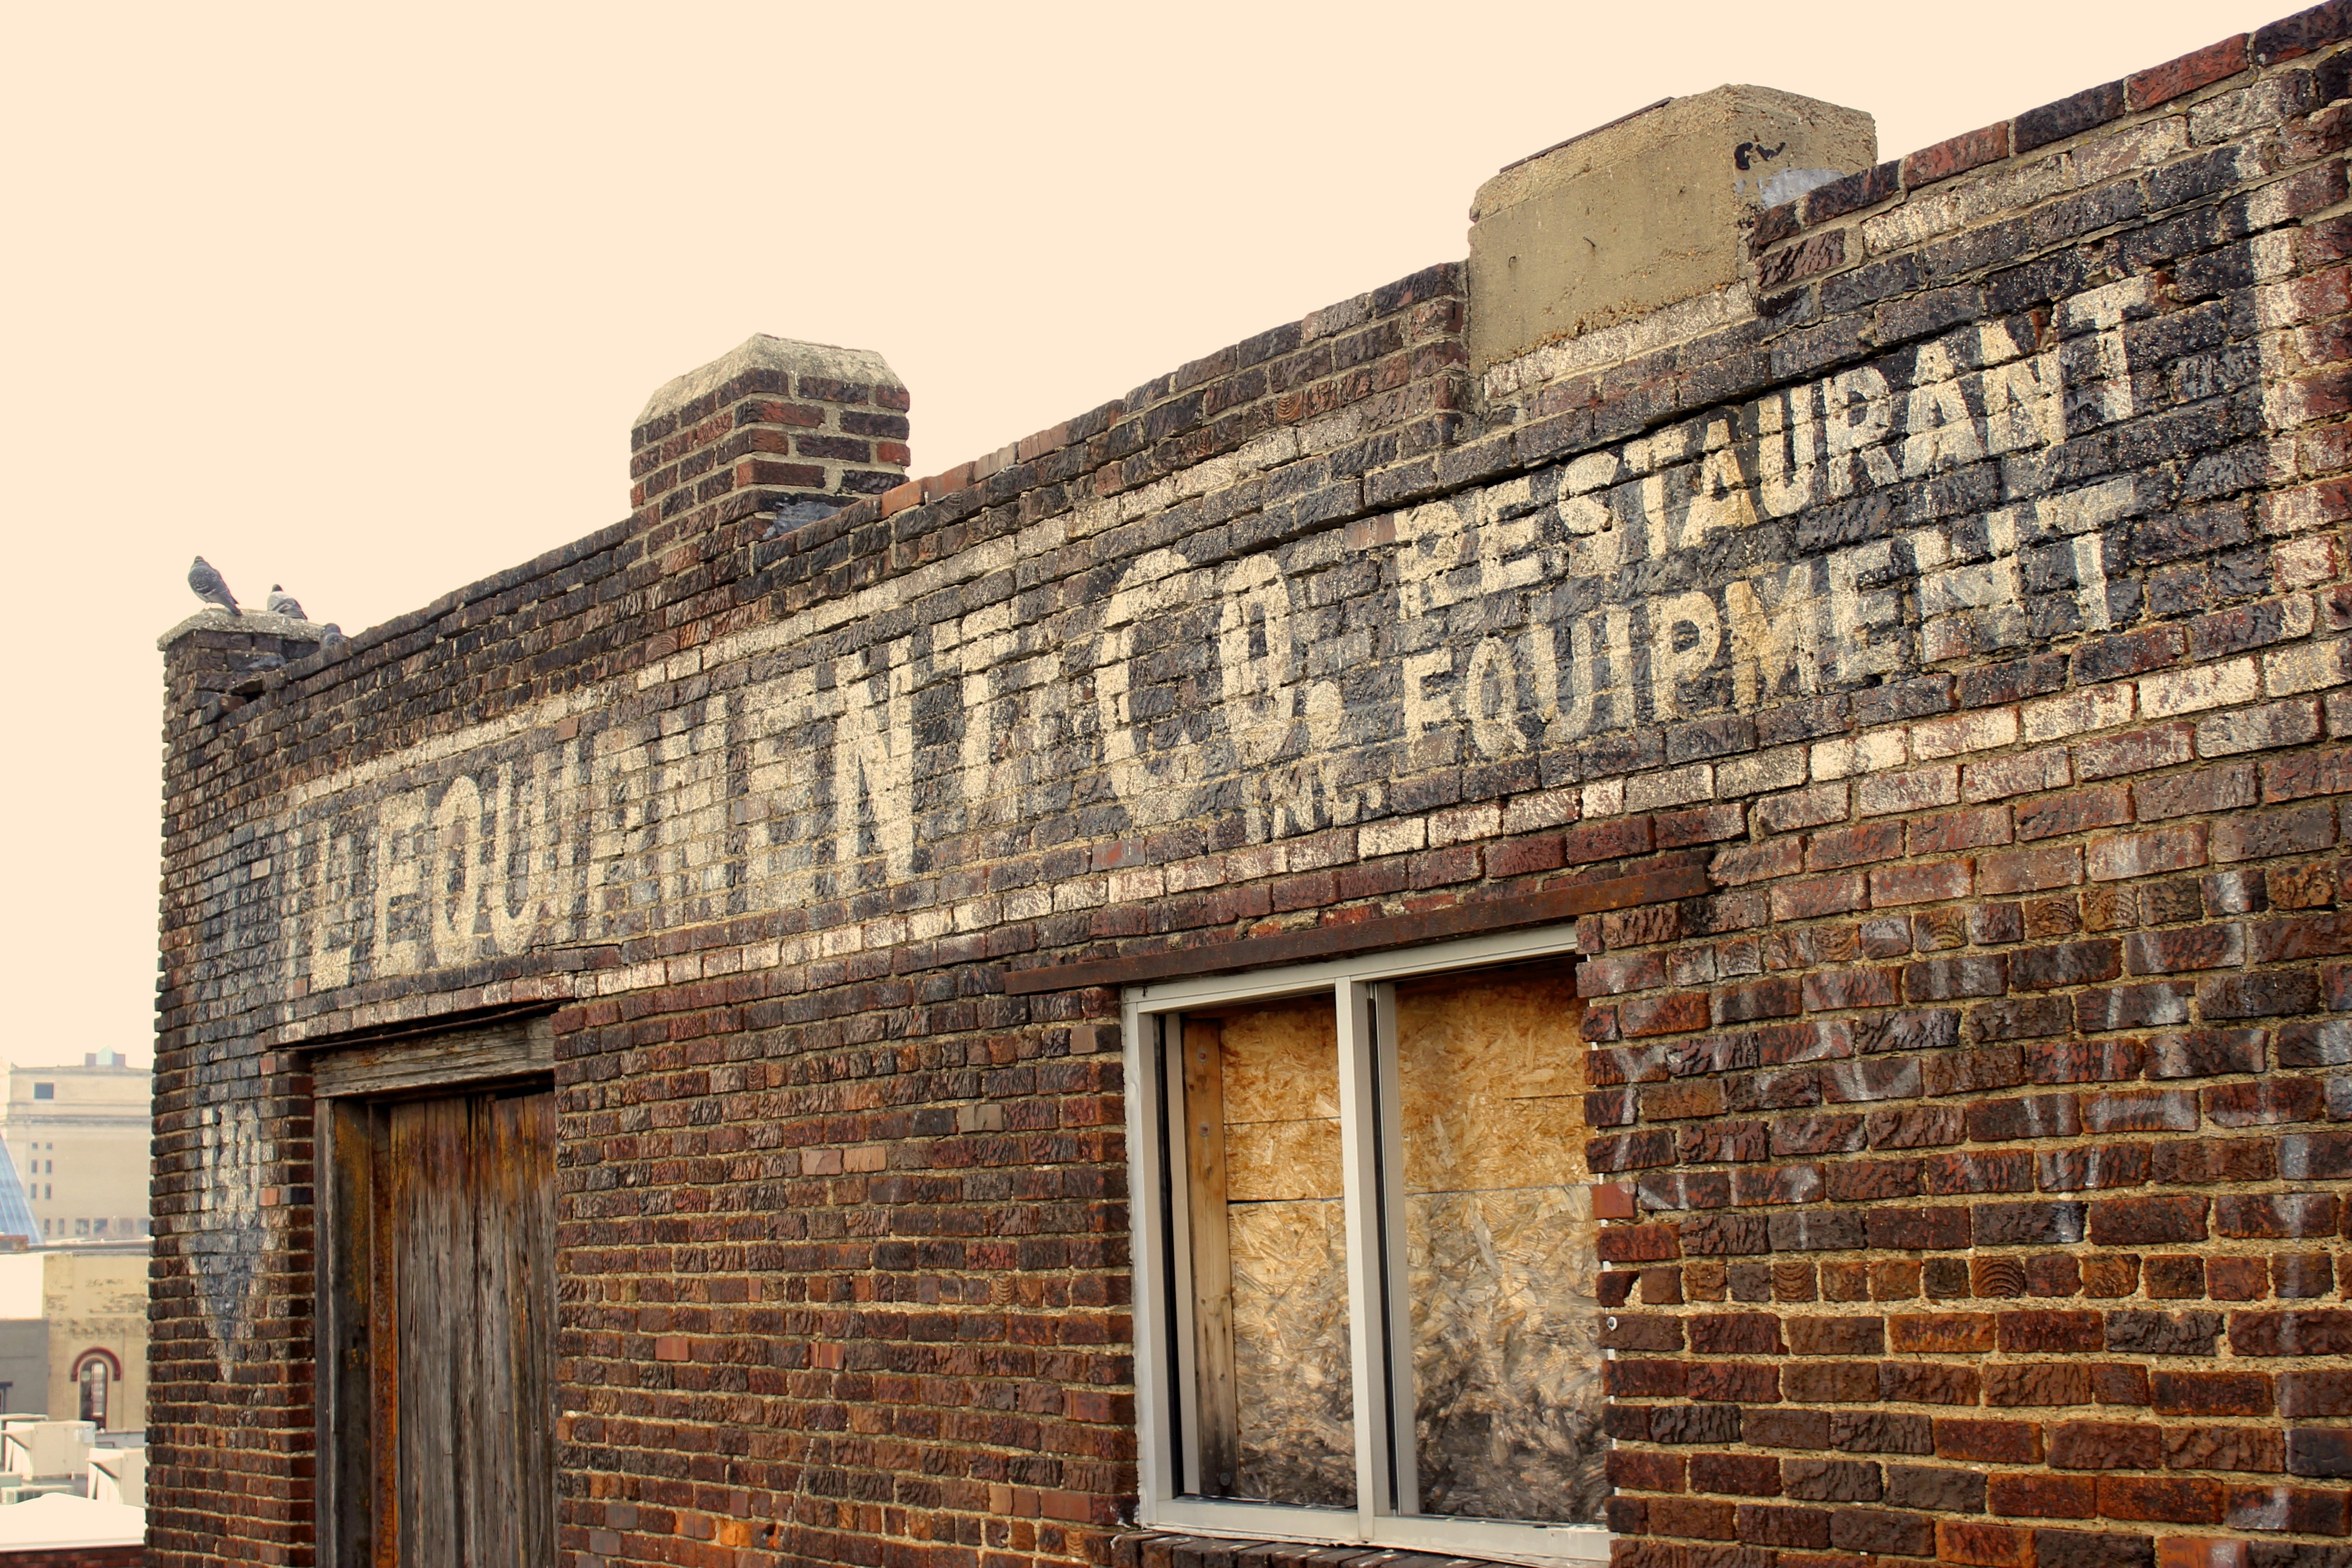 EQUIPMENT CO. INC.
RESTAURANT
EQUIPMENT